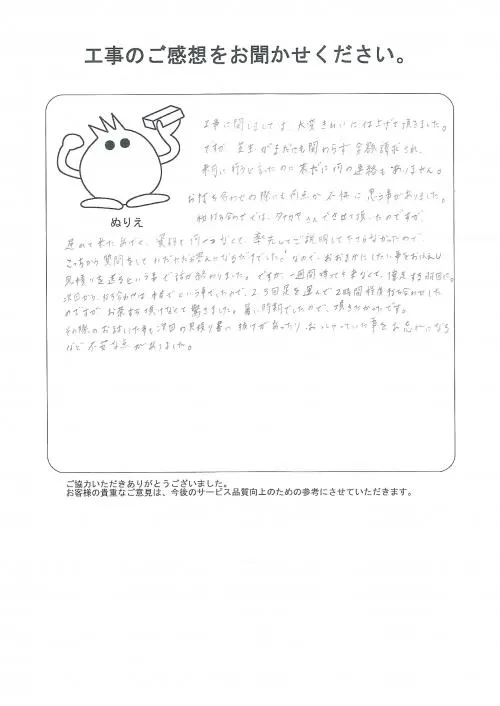 工事のご感想をお聞かせください。
工事に関しましては、大変きれいに仕上げて頂きました。
ですが、芝生がまだにも関わらず全額請求され、
来月に行うと言ったのに未だに何の連絡もありません。
お打ち合わせの際にも何点か不快に思う事がありました。
初打ち合わせでは、 さんでさせて頂いたのですが、
ぬりえ
遅れて来たあげく、資料も何一つなくて、率先してご説明して下さらなかったので、
こちらから質問をして なので、おおまかにしたい事をお伝えし
見積りを送るという事で話が終わりました。ですが、一週間待っても来なくて、催促する羽目に。
次回から、打ち合わせは という事でしたので、 足を運んで2時間程度打ち合わせした
のですが お茶すら頂けなくて驚きました。暑い時期でしたので、頂きたかったです。
その際のお話した事も次回の見積り書に抜けがあったり、おっしゃっていた事をお忘れになる
など不安な点がありました。
ご協力いただきありがとうございました。
お客様の貴重なご意見は、今後のサービス品質向上のための参考にさせていただきます。